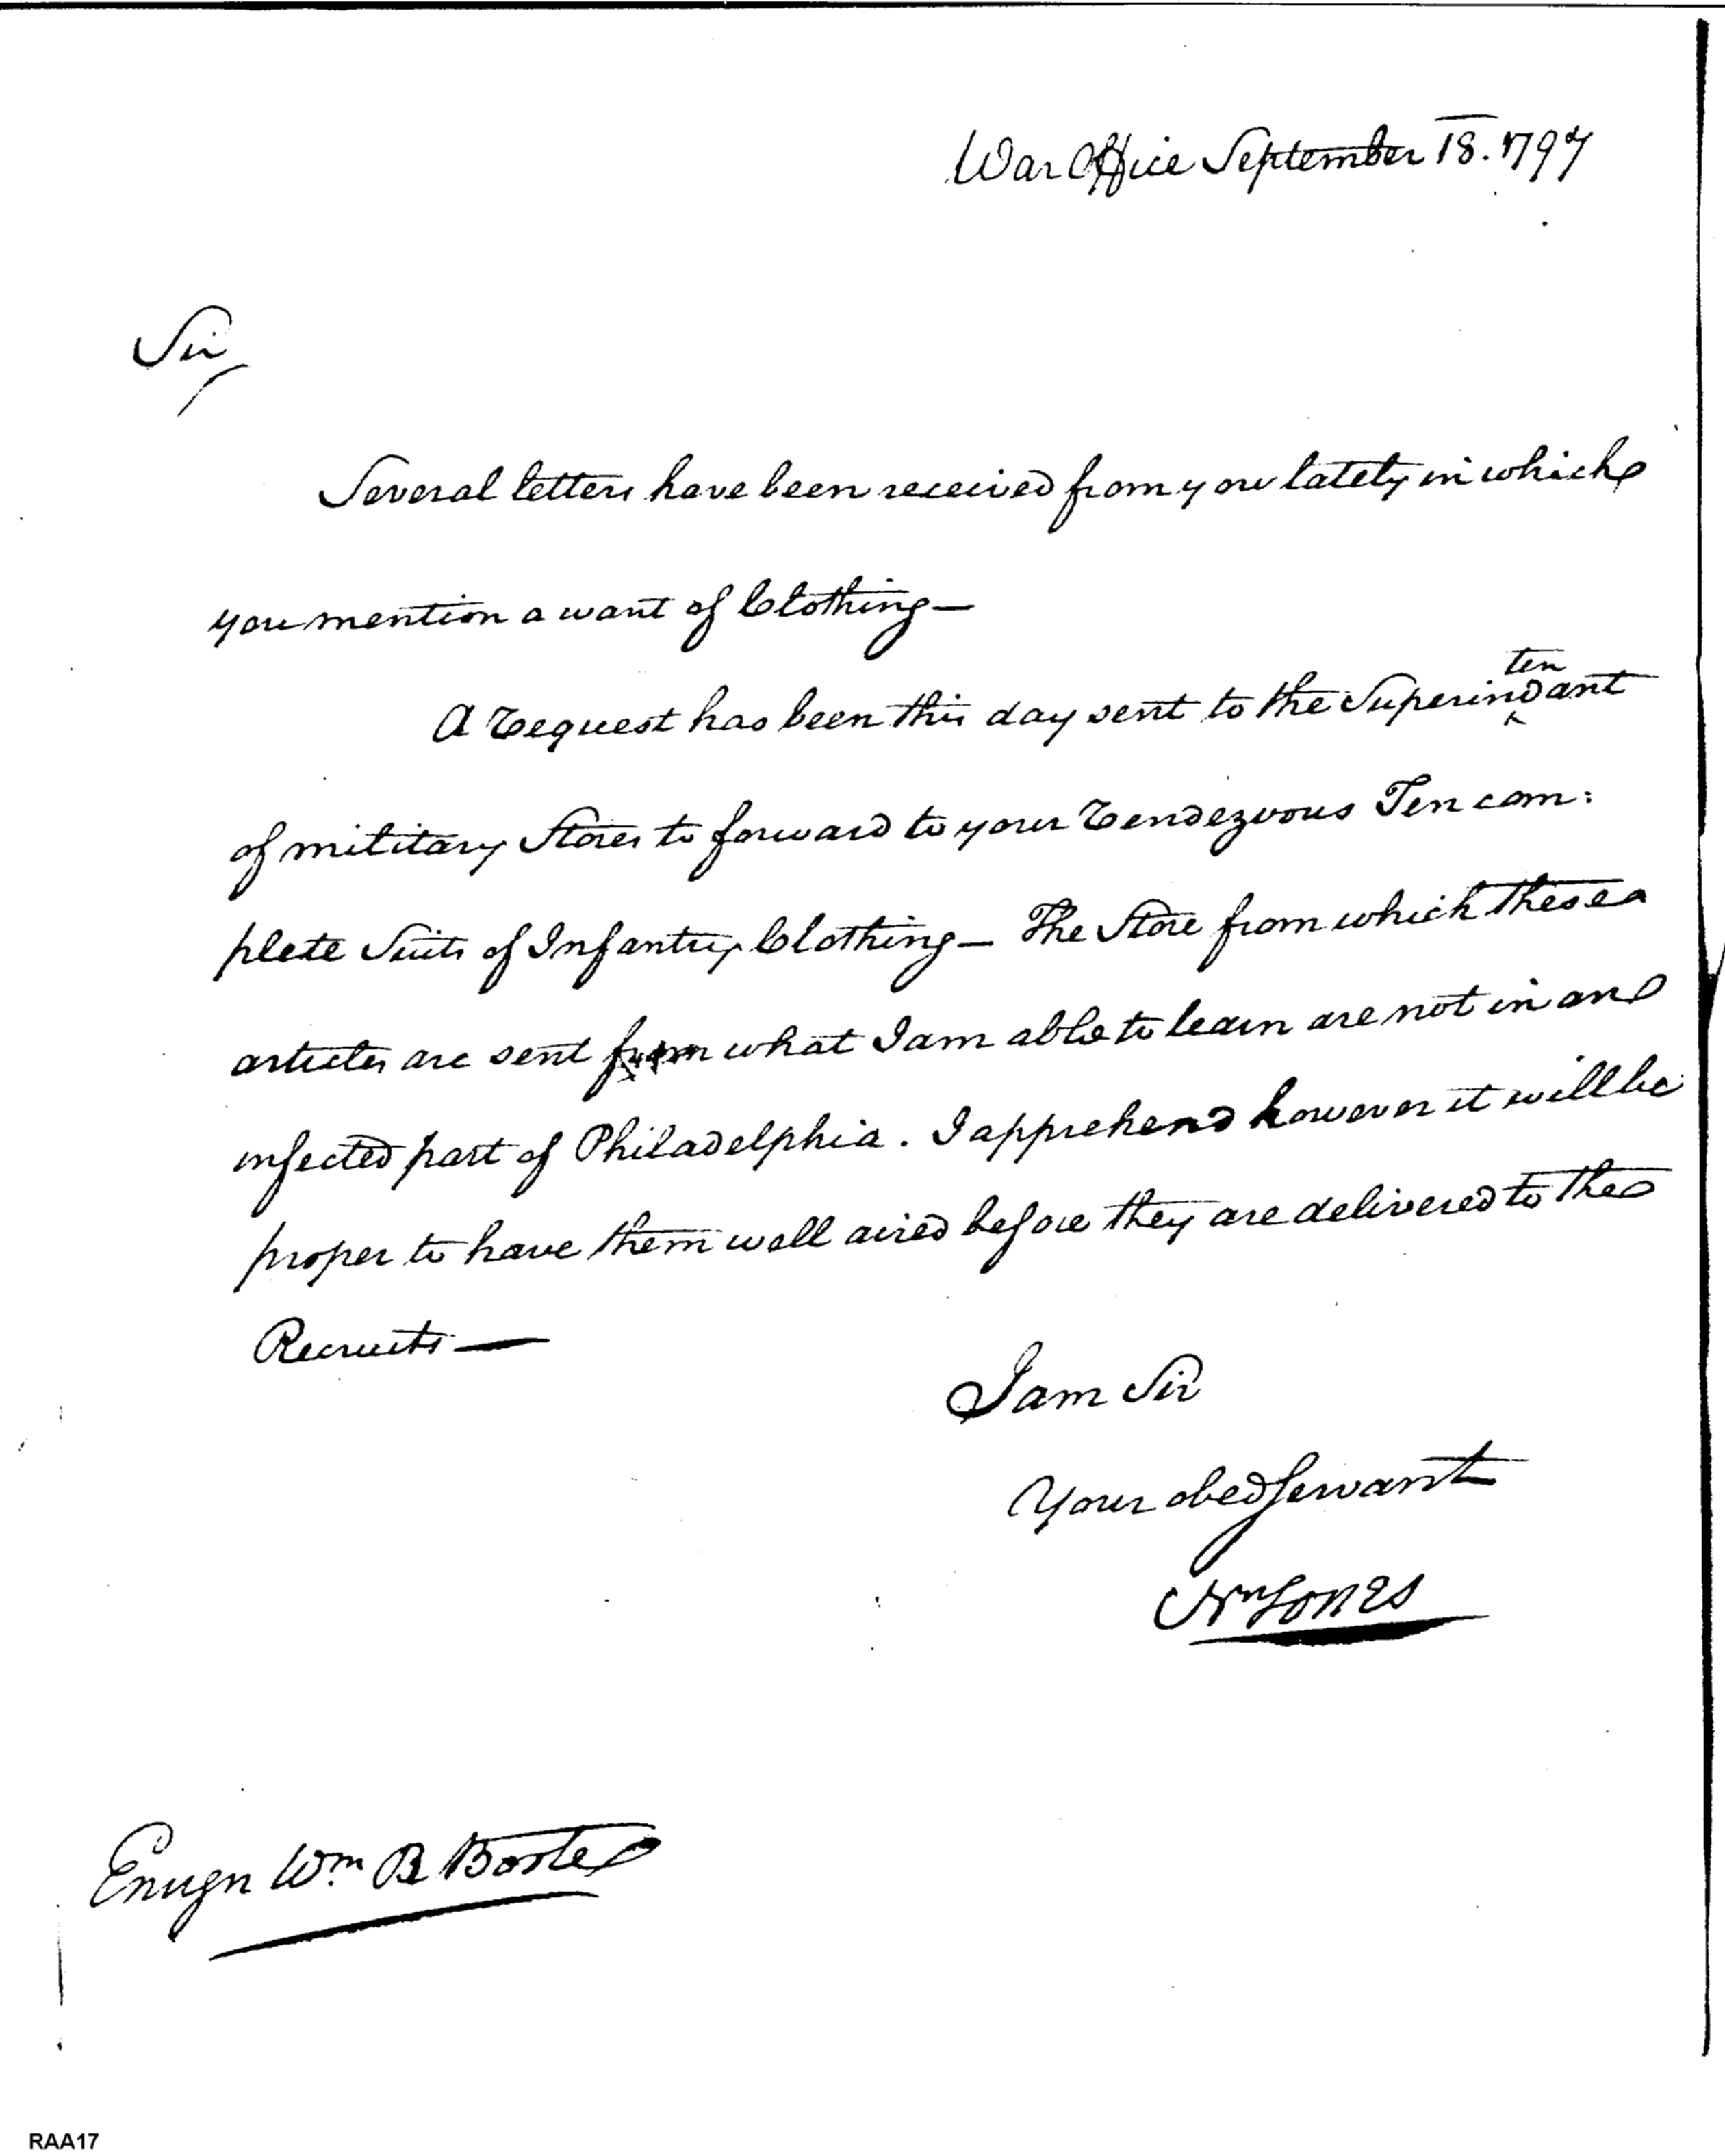 War Office September 18. 1797
Sir
Several letters have been received from you lately in which
you mention a want of Clothing—
ten
A request has been this day sent to the Superindant
of military Stores to forward to your rendezvous Ten com:
plete Suits of Infantry Clothing— The Store from which these
articles are sent from what I am able to learn are not in an
infected part of Philadelphia. I apprehend however it will be
proper to have them well aired before they are delivered to the
Recruits—
I am Sir
Your obed Servant
Wm Jones
Ensign Wm B Boote
RAA17